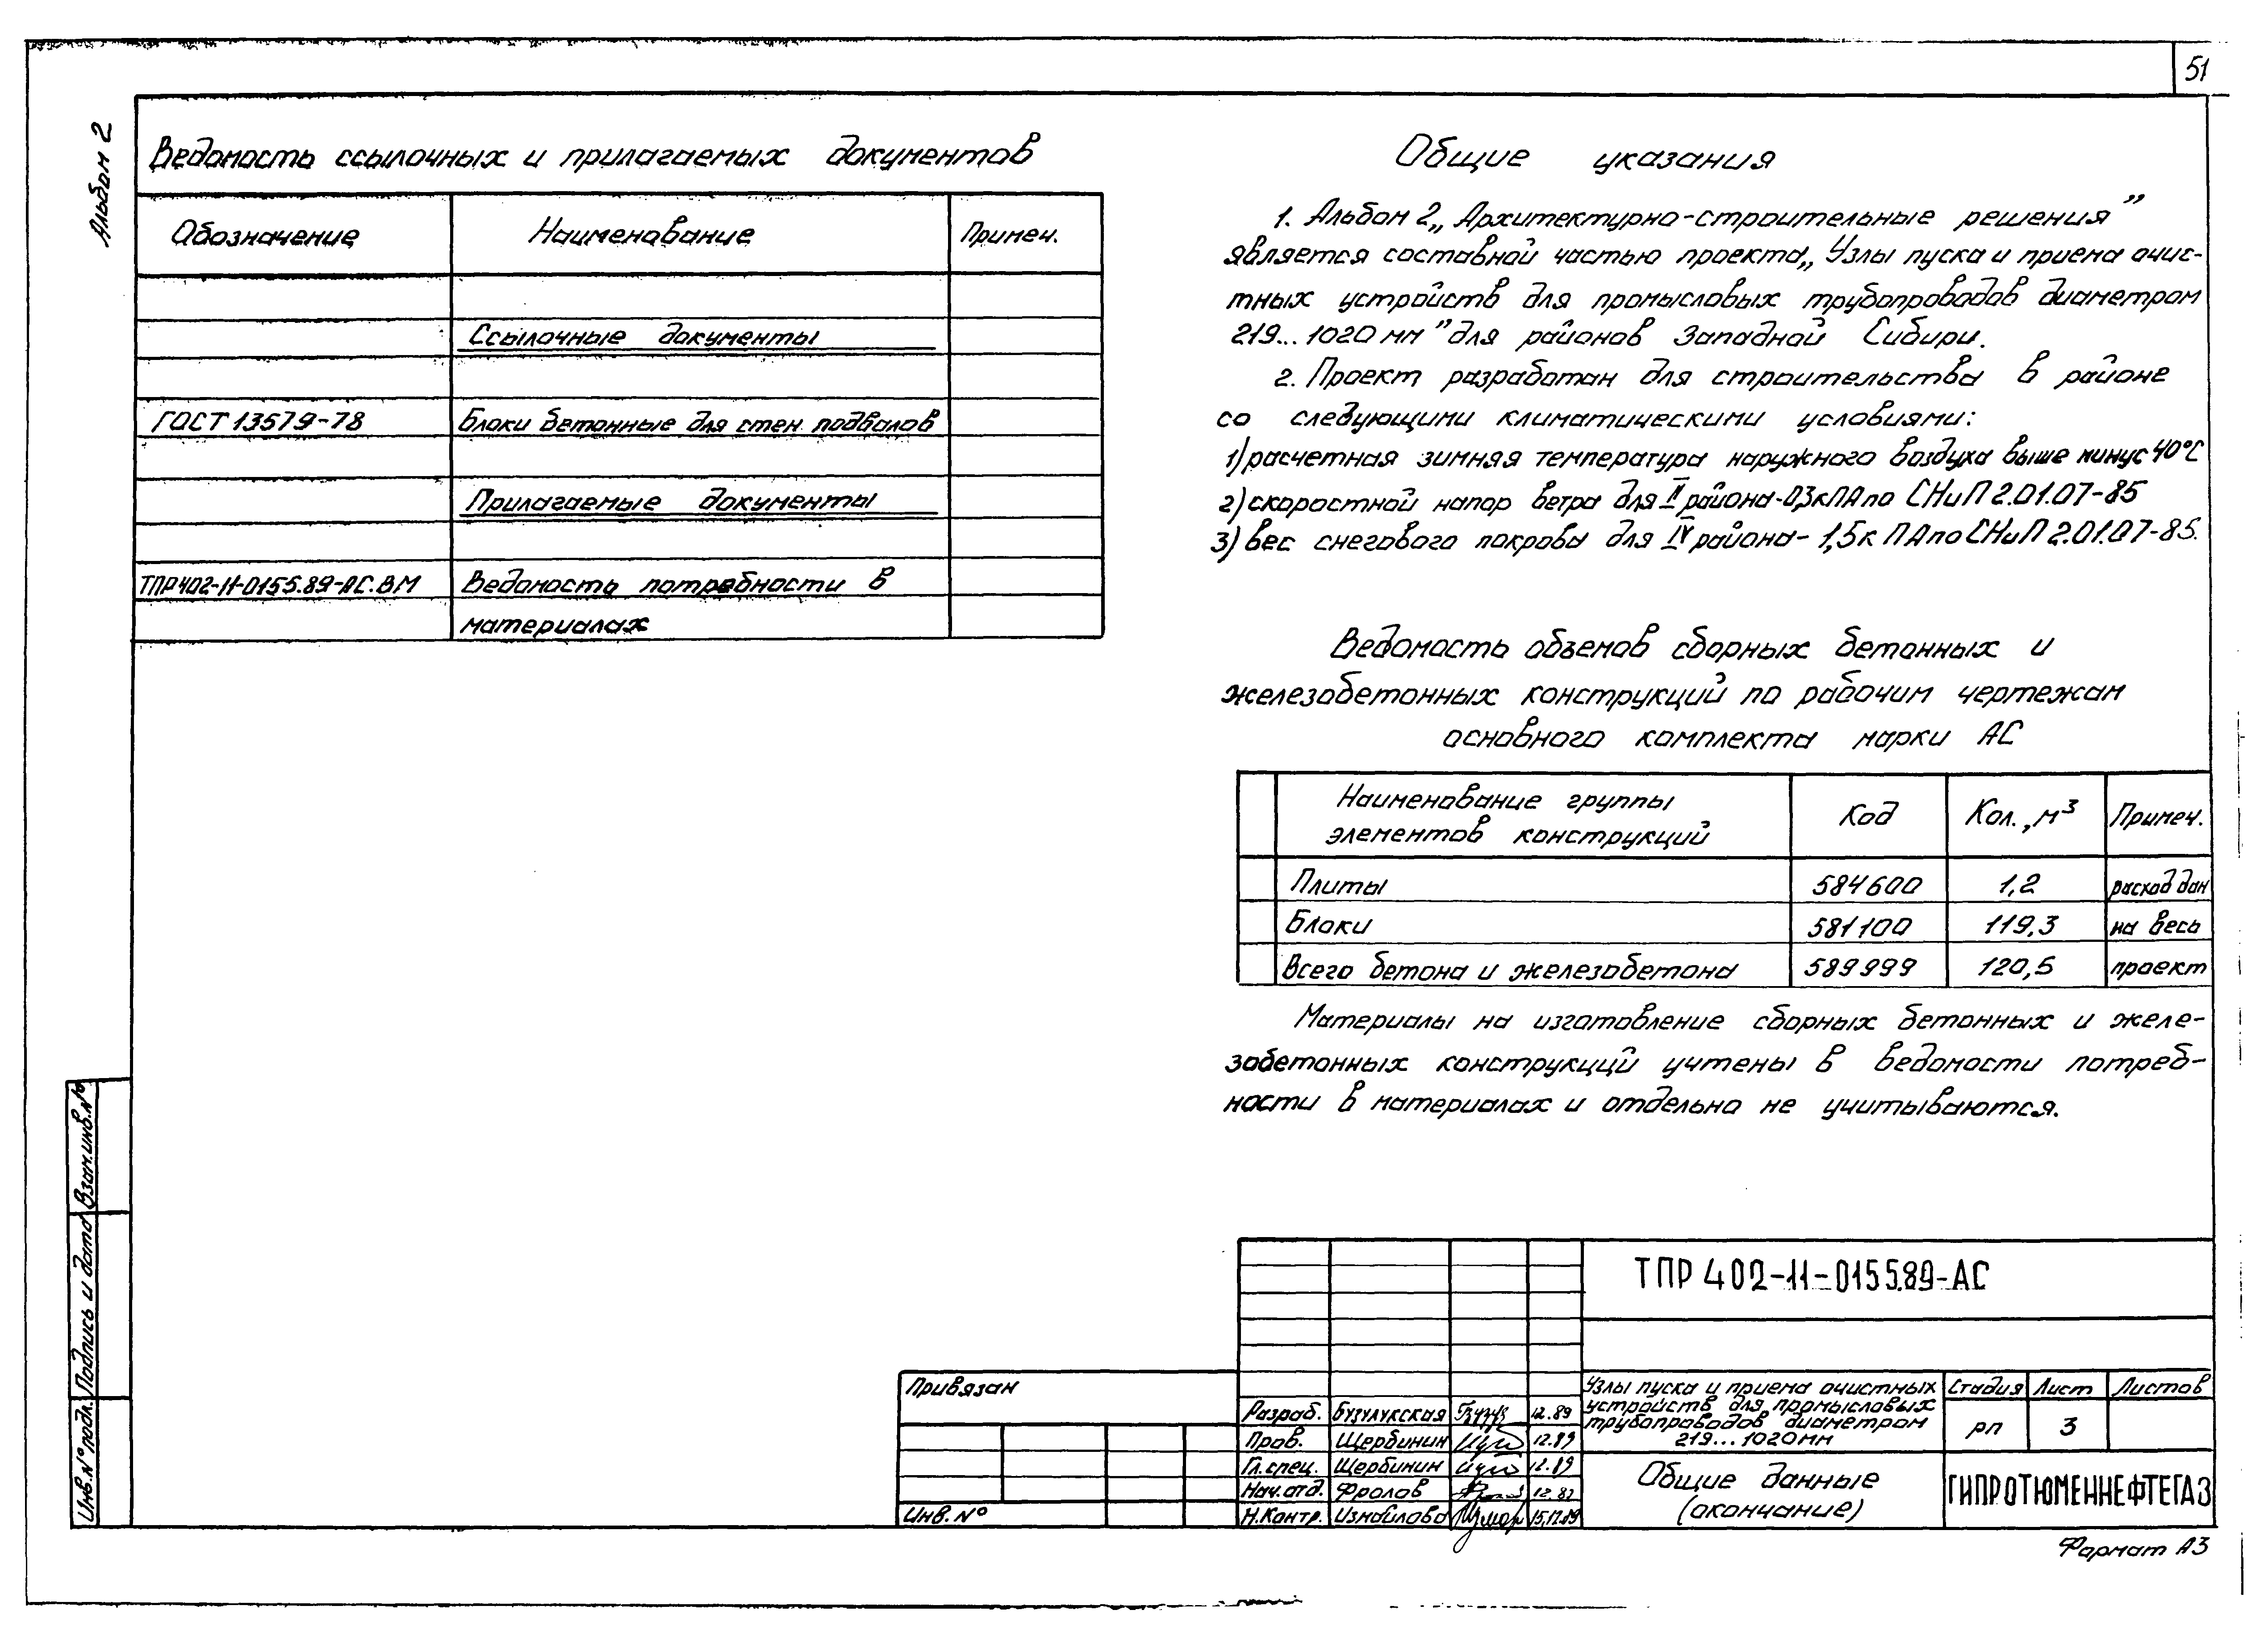 51
Альбом 2
Ведомость ссылочных и прилагаемых документов
Обозначение Наименование Примеч.
Ссылочные документы
ГОСТ 13579-78 Блоки бетонные для стен подвалов
Прилагаемые документы
ТПР 402-11-0155.89-АС.ВМ Ведомость потребности в
материалах
Общие указания
1. Альбом 2 „Архитектурно-строительные решения”
является составной частью проекта „Узлы пуска и приема очис-
тных устройств для промысловых трубопроводов диаметром
219...1020 мм” для районов Западной Сибири.
2. Проект разработан для строительства в районе
со следующими климатическими условиями:
1) расчетная зимняя температура наружного воздуха выше минус 40°С
2) скоростной напор ветра для II района-0,3кПА по СНиП 2.01.07-85
3) вес снегового покрова для IV района-1,5кПА по СНиП 2.01.07-85.
Ведомость объемов сборных бетонных и
железобетонных конструкций по рабочим чертежам
основного комплекта марки АС
Наименование группы
элементов конструкций Код Кол., м³ Примеч.
Плиты 584600 1,2 расход дан
Блоки 581100 119,3 на весь
Всего бетона и железобетона 589999 120,5 проект
Материалы на изготовление сборных бетонных и желе-
зобетонных конструкций учтены в ведомости потреб-
ности в материалах и отдельно не учитываются.
Взам.инв.№
Подпись и дата
Инв.№ подл.
Привязан
Инв.№
ТПР 402-11-0155.89-АС
Разраб. Бузулукская 12.89
Пров. Щербинин 12.89
Гл.спец. Щербинин 12.89
Нач.отд. Фролов 12.89
Н.Контр. Измайлова 15.12.89
Узлы пуска и приема очистных
устройств для промысловых
трубопроводов диаметром
219...1020мм
Стадия Лист Листов
рп 3
Общие данные
(окончание)
ГИПРОТЮМЕННЕФТЕГАЗ
Формат А3